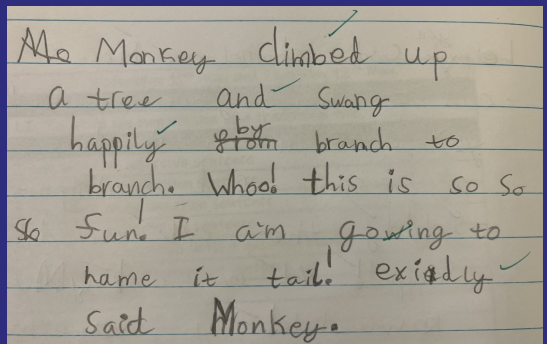 Me Monkey climbed up
a tree and swang
happily by branch to
branch. Whoo! this is so so
so fun! I a'm gowing to
name it tail! exiedly
Said Monkey.